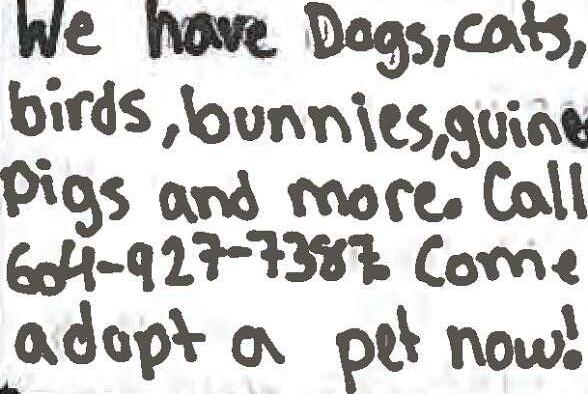 We have Dogs, cats,
birds, bunnies, guine
pigs and more. Call
604-927-7387 Come
adopt a pet now!